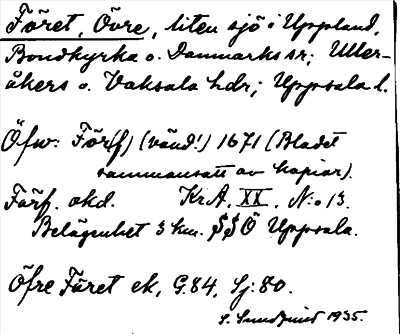 Föret, Övre, liten sjö i Uppland,
Bondkyrka o. Danmarks sr; Uller-
åkers o. Vaksala hdr; Uppsala l.
Öfw:För(f) (vänd!) 1671 (Bladet
sammansatt av kopior).
Förf. okd. Kr.A. XX. N:o 13.
Belägenhet 3 km. SSÖ Uppsala.
Öfre Föret ek, G.84, Sj:80.
S. Sundquist 1935.